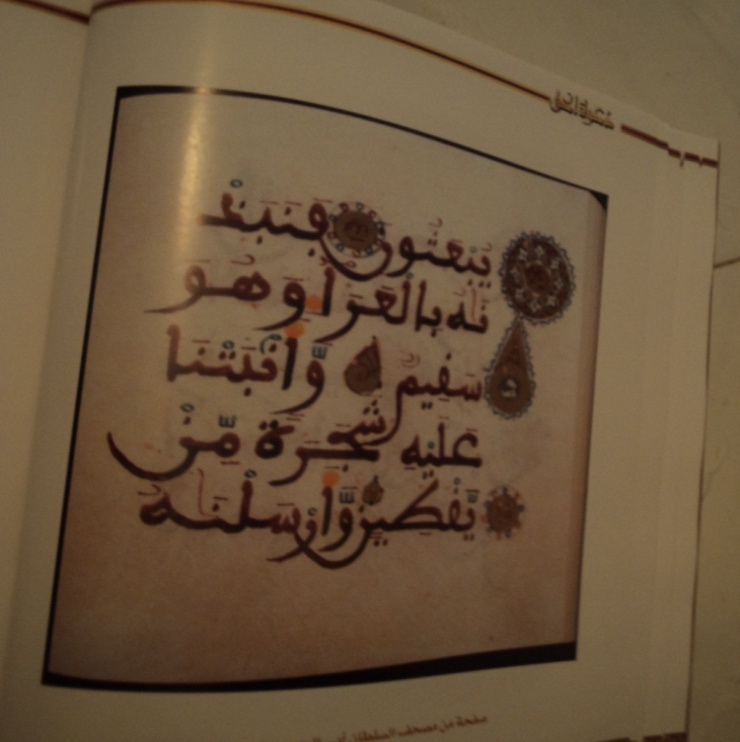 يُبْعَثُونَ فَنَبَذْ
نَٰهُ بِالْعَرَاءِ وَهُوَ
سَقِيمٌ وَّأَنۢبَتْنَا
عَلَيْهِ شَجَرَةً مِّنْ
يَّقْطِينٍ وَّأَرْسَلْنَٰهُ
صفحة من مصحف السلطان